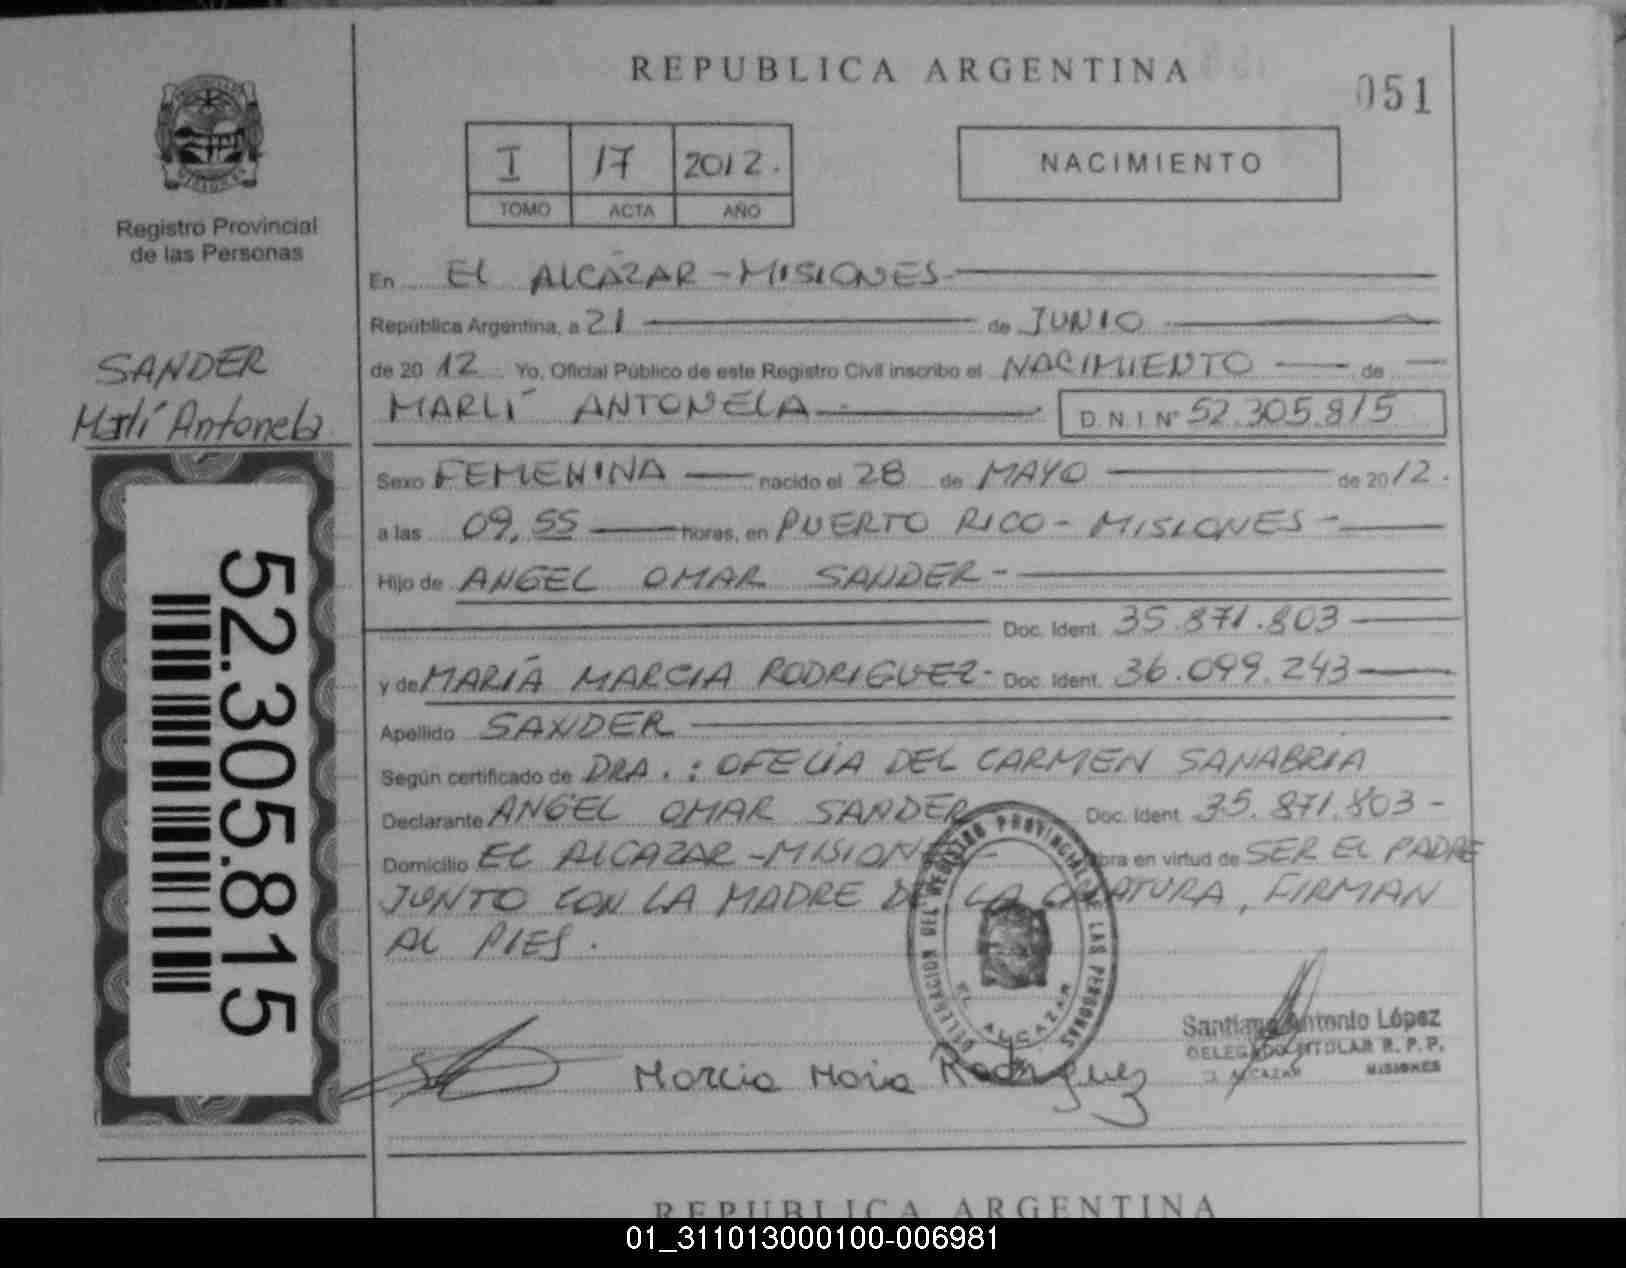 REPUBLICA ARGENTINA
051
I 17 2012.
TOMO ACTA AÑO
NACIMIENTO
Registro Provincial
de las Personas
En EL ALCÁZAR - MISIONES
República Argentina, a 21 de JUNIO
de 20 12 Yo, Oficial Público de este Registro Civil inscribo el NACIMIENTO de
MARLÍ ANTONELA D.N.I. N° 52.305.815
SANDER
Marlí Antonela
52.305.815
Sexo FEMENINA nacido el 28 de MAYO de 20 12.
a las 09,55 horas, en PUERTO RICO - MISIONES -
Hijo de ANGEL OMAR SANDER -
Doc. Ident. 35.871.803
y de MARÍA MARCIA RODRIGUEZ - Doc. Ident. 36.099.243
Apellido SANDER
Según certificado de DRA. : OFELIA DEL CARMEN SANABRIA
Declarante ANGEL OMAR SANDER Doc. Ident. 35.871.803 -
Domicilio EL ALCAZAR - MISIONES - obra en virtud de SER EL PADRE
JUNTO CON LA MADRE DE LA CRIATURA, FIRMAN
AL PIES.
DELEGACION DEL REGISTRO PROVINCIAL DE LAS PERSONAS
EL ALCAZAR
Marcia Maria Rodriguez
Santiago Antonio López
DELEGADO TITULAR R. P. P.
EL ALCAZAR MISIONES
REPUBLICA ARGENTINA
01_311013000100-006981